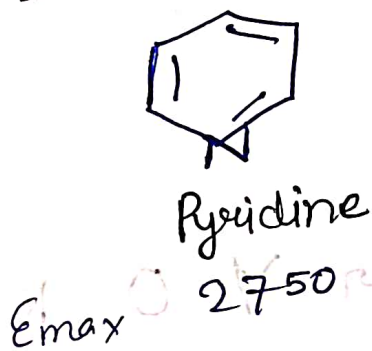 Pyridine
Emax 2750